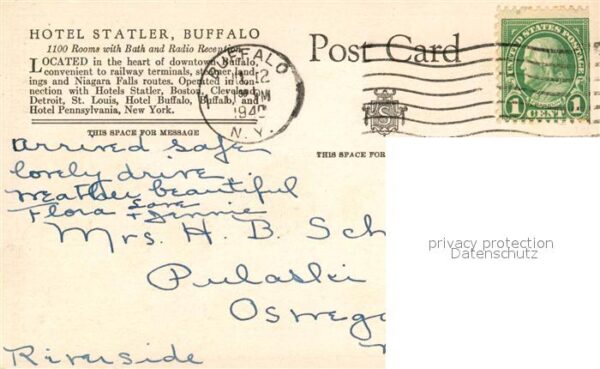 HOTEL STATLER, BUFFALO
1100 Rooms with Bath and Radio Reception
LOCATED in the heart of downtown Buffalo,
convenient to railway terminals, steamer land-
ings and Niagara Falls routes. Operated in con-
nection with Hotels Statler, Boston, Cleveland,
Detroit, St. Louis, Hotel Buffalo, Buffalo, and
Hotel Pennsylvania, New York.
BUFFALO
12
PM
N. Y.
Post Card
UNITED STATES POSTAGE
1 CENT 1
S
THIS SPACE FOR MESSAGE
THIS SPACE FOR
arrived safe
lovely drive
weather beautiful
Love
Flora + Jennie
Mrs. H. B. Sch
Pulaski
Osweg
Riverside
privacy protection
Datenschutz